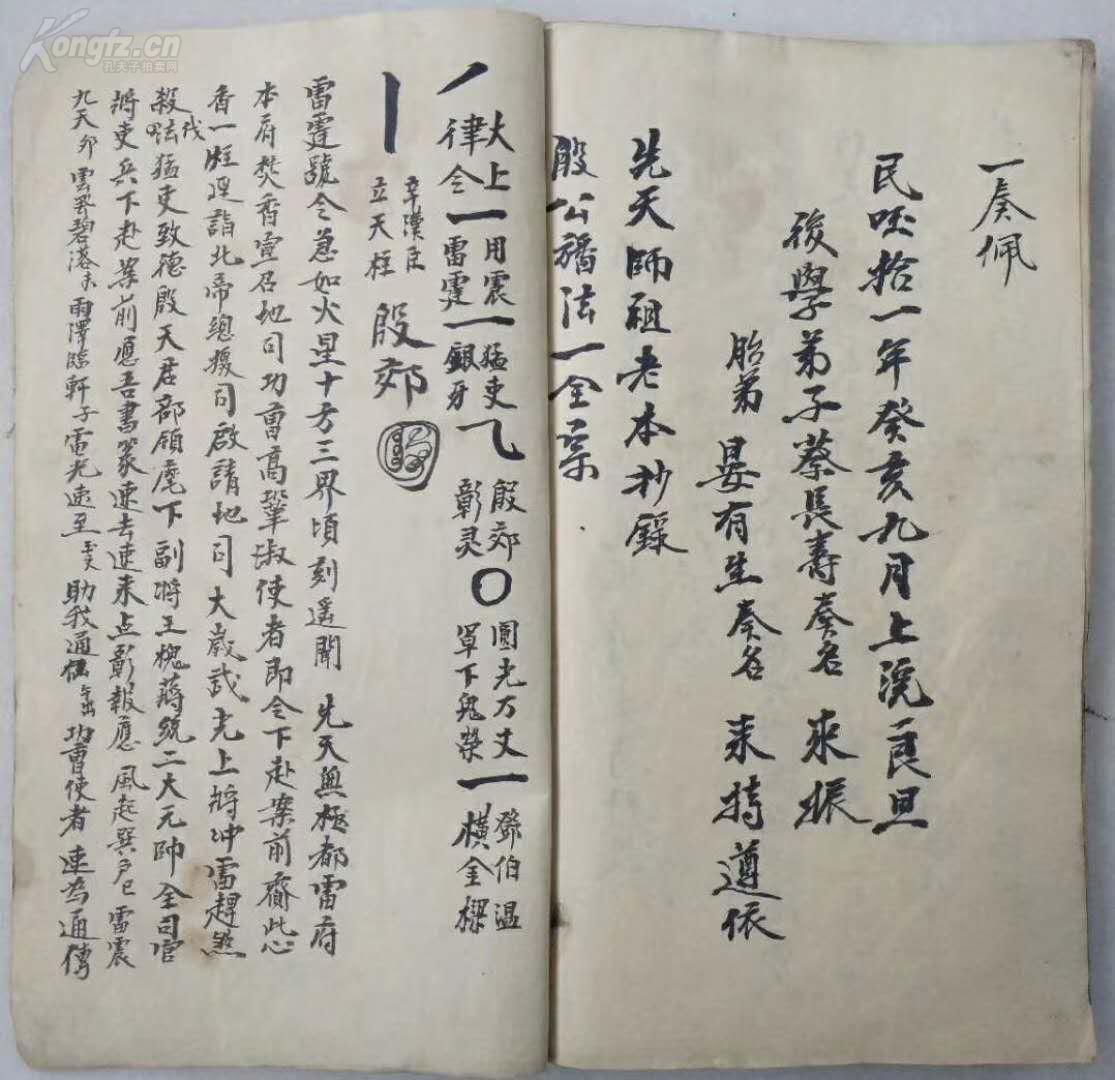 一奏佩
民咥拾一年癸亥九月上浣良旦
後學弟子蔡長壽奏名 來振
胎弟 晏有生奏名 来持 遵依
先天師祖老本抄録
殷公禳法一全宗
大上 用震 猛吏 殷郊 圓光万丈 鄧伯温
律令 雷霆 銀牙 彰灵 罩下鬼 横金樑
辛漢臣
立天柱 殷郊
雷霆號令急如火星十方三界頃刻遥聞 先天無極都雷府
本府焚香壹召地司功曹高鞏淑使者即令下赴案前賫此心
香一炷逕詣北帝總攝司啟請地司大歲武光上將冲雷趕煞
殺伐吆猛吏致德殷天君部領麾下副將王槐蔣統二大元帥全司官
將吏兵下赴案前愿吾書篆速去速来点彰報應 風起巽户巳雷震
九天卯雲罗碧落未雨澤臨軒子電光速至 助我通 功曹使者 速為通傳
Kongfz.cn
孔夫子拍卖网